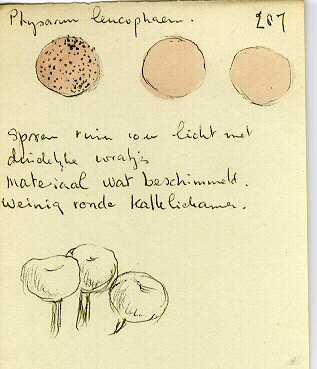 Physarum leucophaeum. 207
Sporen 10 u licht met
duidelijke wratjes
Materiaal wat beschimmeld.
Weinig ronde kalklichamen.